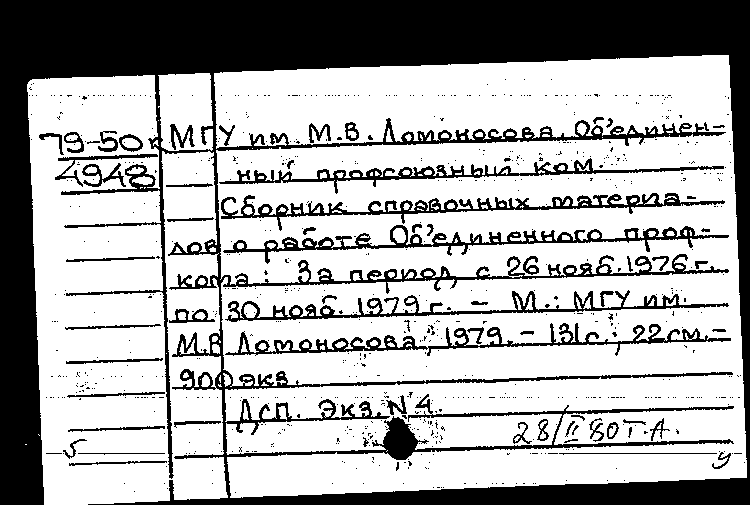 79-50к
4948
МГУ им. М.В. Ломоносова. Об'единен-
ный профсоюзный ком.
Сборник справочных материа-
лов о работе Об'единенного проф-
кома: За период с 26 нояб. 1976 г.
по 30 нояб. 1979 г. – М.: МГУ им.
М.В Ломоносова, 1979. – 131 с.; 22 см. –
900 экз.
ДСП. Экз. N 4.
28/II 80 Т.А.
5
у